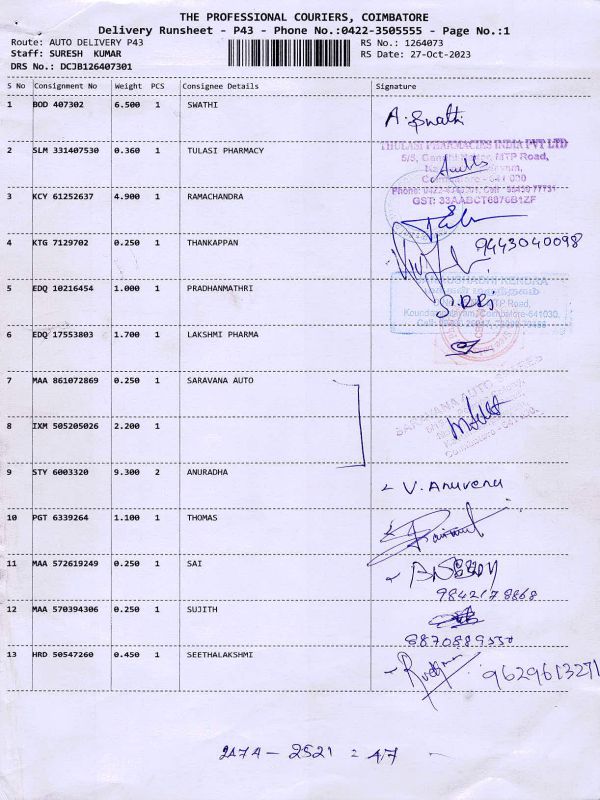 THE PROFESSIONAL COURIERS, COIMBATORE
Delivery Runsheet - P43 - Phone No.:0422-3505555 - Page No.:1
Route: AUTO DELIVERY P43 RS No.: 1264073
Staff: SURESH KUMAR RS Date: 27-Oct-2023
DRS No.: DCJB126407301
S No Consignment No Weight PCS Consignee Details Signature
1 BOD 407302 6.500 1 SWATHI A. Swathi
2 SLM 331407530 0.360 1 TULASI PHARMACY
THULASI PHARMACIES INDIA PVT LTD
MTP Road,
Coimbatore - 641 030
GST: 33AABCT6876B1ZF
3 KCY 61252637 4.900 1 RAMACHANDRA
4 KTG 7129702 0.250 1 THANKAPPAN 9443040098
5 EDQ 10216454 1.000 1 PRADHANMATHRI
KENDRA
MTP Road,
Coimbatore-641030.
6 EDQ 17553803 1.700 1 LAKSHMI PHARMA
7 MAA 861072869 0.250 1 SARAVANA AUTO
SARAVANA AUTO
8 IXM 505205026 2.200 1
9 STY 6003320 9.300 2 ANURADHA V. Anuvenu
10 PGT 6339264 1.100 1 THOMAS
11 MAA 572619249 0.250 1 SAI
9842178868
12 MAA 570394306 0.250 1 SUJITH
13 HRD 50547260 0.450 1 SEETHALAKSHMI 9629613271
2474 - 2521 = 47